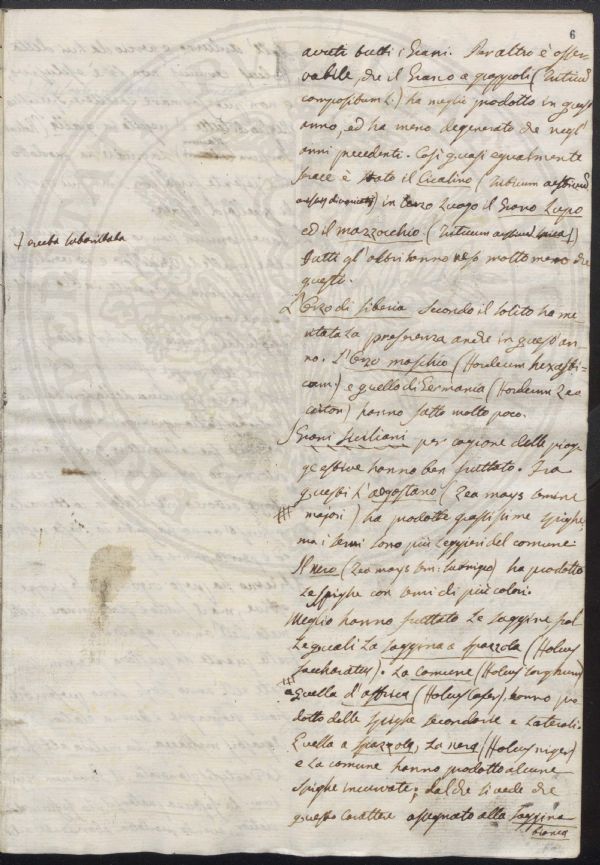 6
avuti tutti i Grani. Per altro è osser-
vabile, che il Grano a grappoli (Triticũ
compositum L.) ha meglio prodotto in quest'
anno, ed ha meno degenerato che negl'
anni precedenti. Così quasi egualmente
ferace è stato il Cicalino (Triticum aestivum
) in terzo luogo il Grano Lupo
ed il mazzocchio. (Triticum aestivum
Tutti gl'altri hanno reso molto meno di
questi.
L'Orzo di Siberia secondo il solito ha me-
ritata la preferenza anche in quest'an-
no. L'Orzo maschio (Hordeum hexasti-
cum) e quello di Germania (Hordeum Zeo
criton) hanno fatto molto poco.
I Grani Siciliani per cagione delle piog-
ge estive hanno ben fruttato. Fra
questi l' (Zea mays semine
majori) ha prodotte grossissime spighe,
ma i semi sono più leggieri del comune.
Il nero (Zea mays sem: ) ha prodotto
le spighe con semi di più colori.
Meglio hanno fruttato le saggine fral-
le quali la saggina a spazzola (Holcus
saccharatus). La comune (Holcus sorghum)
quella d'affrica (Holcus cafer), hanno pro-
dotto delle spighe secondarie e laterali.
Quella a spazzola, la nera (Holcus niger)
e la comune hanno prodotto alcune
spighe incurvate; dal che si vede che
questo carattere assegnato alla saggina
bianca